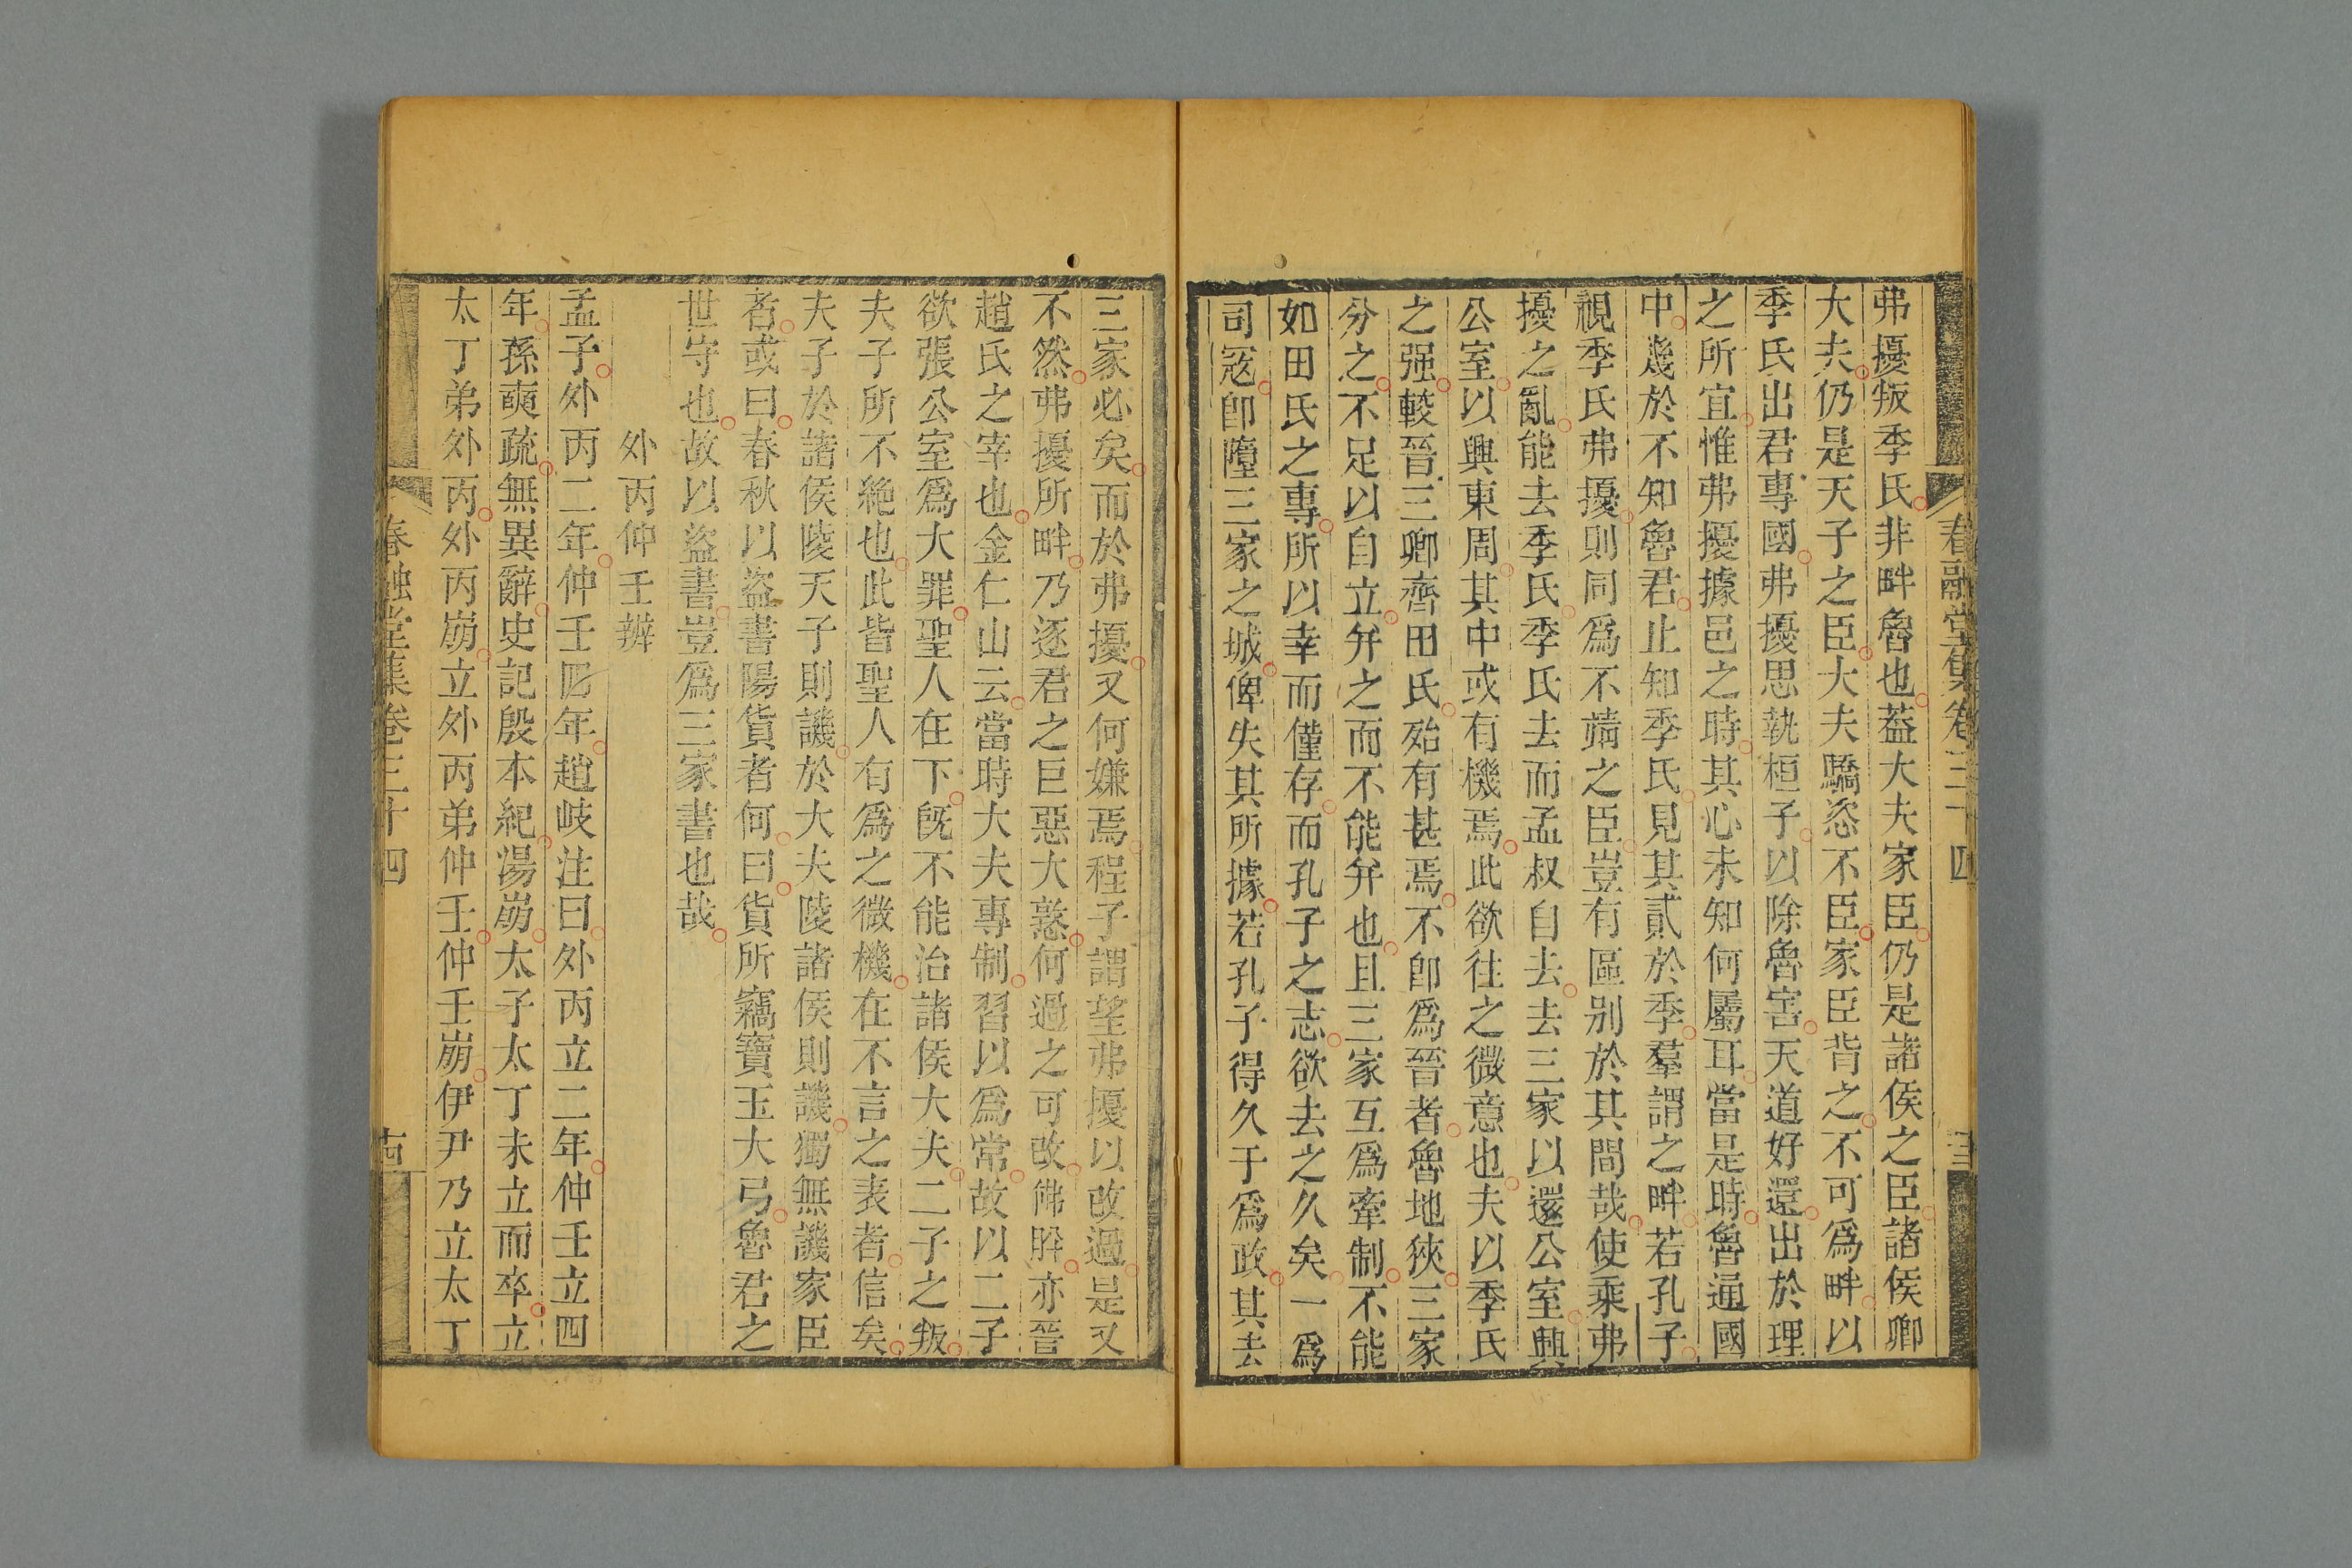 春融堂集卷三十四
弗擾叛季氏非畔魯也葢大夫家臣仍是諸侯之臣諸侯卿
大夫仍是天子之臣大夫驕恣不臣家臣背之不可爲畔以
季氏出君專國弗擾思執桓子以除魯害天道好還出於理
之所宜惟弗擾據邑之時其心未知何屬耳當是時魯通國
中幾於不知魯君止知季氏見其貳於季羣謂之畔若孔子
視季氏弗擾則同爲不靖之臣豈有區别於其間哉使乘弗
擾之亂能去季氏季氏去而孟叔自去去三家以還公室興
公室以興東周其中或有機焉此欲往之微意也夫以季氏
之强較晉三卿齊田氏殆有甚焉不卽爲晉者魯地狹三家
分之不足以自立弁之而不能弁也且三家互爲牽制不能
如田氏之專所以幸而僅存而孔子之志欲去之久矣一爲
司寇卽墮三家之城俾失其所據若孔子得久于爲政其去
三家必矣而於弗擾又何嫌焉程子謂望弗擾以改過是又
不然弗擾所畔乃逐君之巨惡大憝何過之可改佛肸亦晉
趙氏之宰也金仁山云當時大夫專制習以爲常故以二子
欲張公室爲大罪聖人在下旣不能治諸侯大夫二子之叛
夫子所不絶也此皆聖人有爲之微機在不言之表者信矣
夫子於諸侯陵天子則譏於大夫陵諸侯則譏獨無譏家臣
者或曰春秋以盜書陽貨者何曰貨所竊寶玉大弓魯君之
世守也故以盜書豈爲三家書也哉
外丙仲壬辨
孟子外丙二年仲壬四年趙岐注曰外丙立二年仲壬立四
年孫奭疏無異辭史記殷本紀湯崩太子太丁未立而卒立
太丁弟外丙外丙崩立外丙弟仲壬仲壬崩伊尹乃立太丁
春融堂集卷三十四